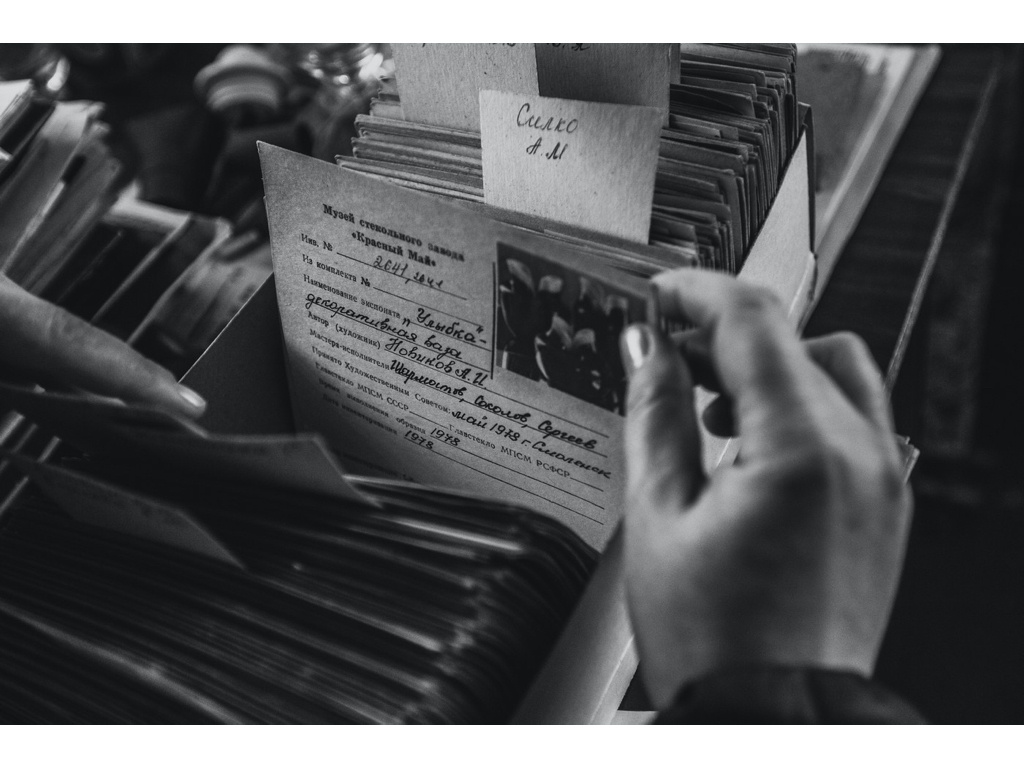 Силко
А.М
Музей стекольного завода
«Красный Май»
Инв. № 2641, 2041
Из комплекта №
Наименование экспоната „Улыбка"-
декоративная ваза
Автор (художник) Новиков А.И
Мастера-исполнители Шармотов, Соколов, Сергеев
Принято Художественным Советом: май 1978 г. Смоленск
Главстекло МПСМ СССР Главстекло МПСМ РСФСР
Время выполнения образца 1978
1978